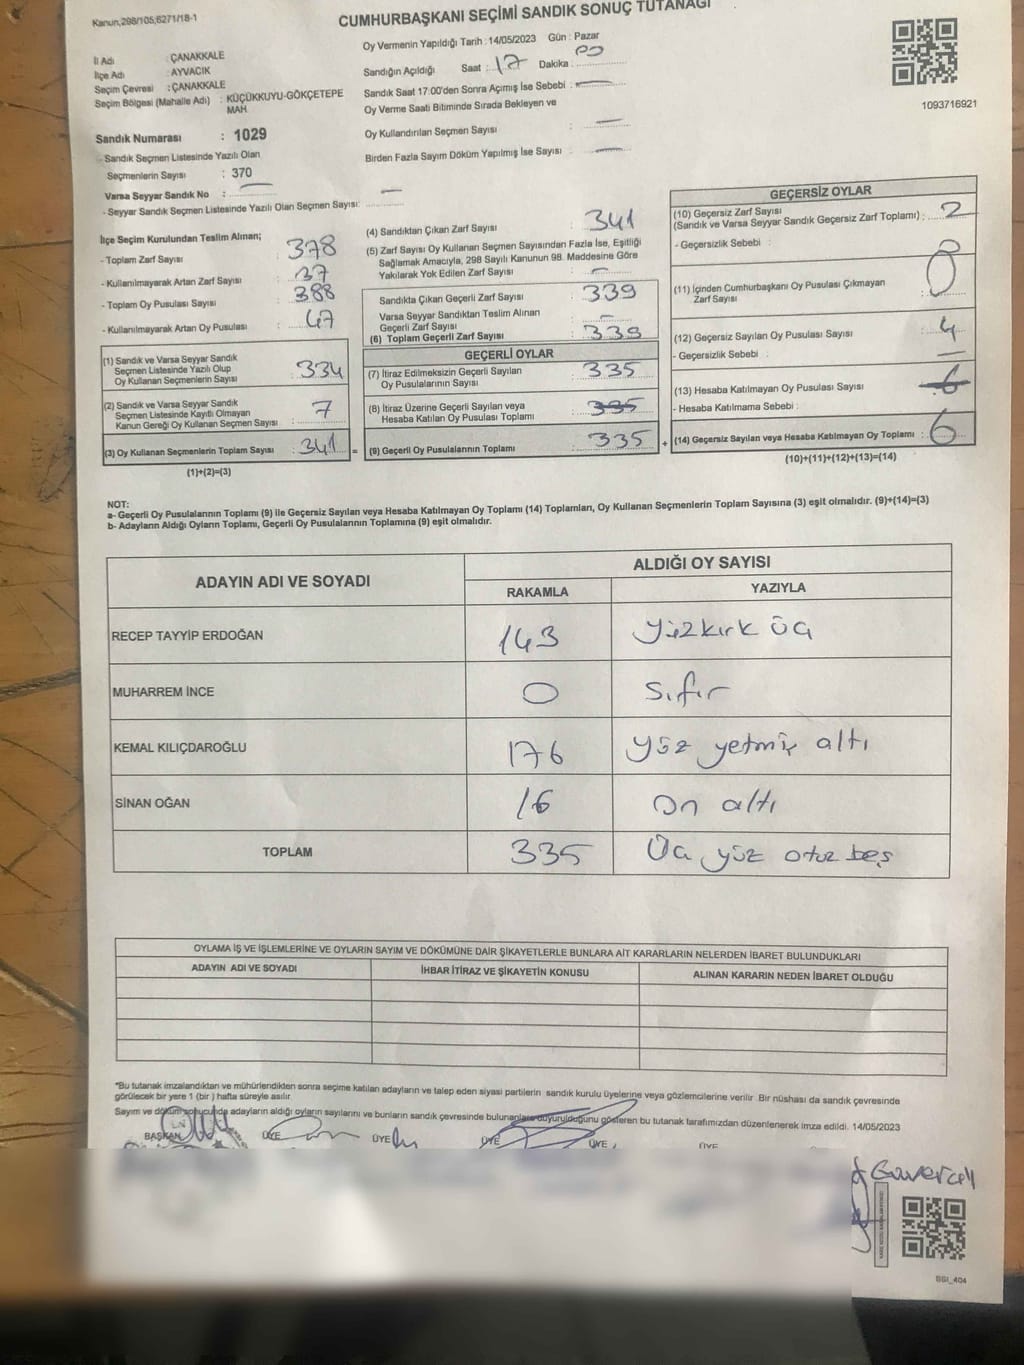 Kanun,298/105,6271/18-1
CUMHURBAŞKANI SEÇİMİ SANDIK SONUÇ TUTANAĞI
İl Adı : ÇANAKKALE
İlçe Adı : AYVACIK
Seçim Çevresi : ÇANAKKALE
Seçim Bölgesi (Mahalle Adı) : KÜÇÜKKUYU-GÖKÇETEPE MAH.
Sandık Numarası : 1029
- Sandık Seçmen Listesinde Yazılı Olan
Seçmenlerin Sayısı : 370
Varsa Seyyar Sandık No :
- Seyyar Sandık Seçmen Listesinde Yazılı Olan Seçmen Sayısı:
Oy Vermenin Yapıldığı Tarih : 14/05/2023 Gün : Pazar
Sandığın Açıldığı Saat : 17 Dakika : 00
Sandık Saat 17:00'den Sonra Açımış İse Sebebi :
Oy Verme Saati Bitiminde Sırada Bekleyen ve
Oy Kullandırılan Seçmen Sayısı :
Birden Fazla Sayım Döküm Yapılmış İse Sayısı :
1093716921
İlçe Seçim Kurulundan Teslim Alınan;
- Toplam Zarf Sayısı : 378
- Kullanılmayarak Artan Zarf Sayısı : 37
- Toplam Oy Pusulası Sayısı : 388
- Kullanılmayarak Artan Oy Pusulası : 47
(1) Sandık ve Varsa Seyyar Sandık
Seçmen Listesinde Yazılı Olup
Oy Kullanan Seçmenlerin Sayısı : 334
(2) Sandık ve Varsa Seyyar Sandık
Seçmen Listesinde Kayıtlı Olmayan
Kanun Gereği Oy Kullanan Seçmen Sayısı : 7
(3) Oy Kullanan Seçmenlerin Toplam Sayısı : 341 =
(1)+(2)=(3)
(4) Sandıktan Çıkan Zarf Sayısı : 341
(5) Zarf Sayısı Oy Kullanan Seçmen Sayısından Fazla İse, Eşitliği
Sağlamak Amacıyla, 298 Sayılı Kanunun 98. Maddesine Göre
Yakılarak Yok Edilen Zarf Sayısı :
Sandıkta Çıkan Geçerli Zarf Sayısı : 339
Varsa Seyyar Sandıktan Teslim Alınan
Geçerli Zarf Sayısı :
(6) Toplam Geçerli Zarf Sayısı : 339
GEÇERLİ OYLAR
(7) İtiraz Edilmeksizin Geçerli Sayılan
Oy Pusulalarının Sayısı : 335
(8) İtiraz Üzerine Geçerli Sayılan veya
Hesaba Katılan Oy Pusulası Toplamı : 335
(9) Geçerli Oy Pusulalarının Toplamı : 335 +
GEÇERSİZ OYLAR
(10) Geçersiz Zarf Sayısı
(Sandık ve Varsa Seyyar Sandık Geçersiz Zarf Toplamı) : 2
- Geçersizlik Sebebi :
(11) İçinden Cumhurbaşkanı Oy Pusulası Çıkmayan
Zarf Sayısı : 0
(12) Geçersiz Sayılan Oy Pusulası Sayısı : 4
- Geçersizlik Sebebi :
(13) Hesaba Katılmayan Oy Pusulası Sayısı : 6
- Hesaba Katılmama Sebebi :
(14) Geçersiz Sayılan veya Hesaba Katılmayan Oy Toplamı : 6
(10)+(11)+(12)+(13)=(14)
NOT:
a- Geçerli Oy Pusulalarının Toplamı (9) ile Geçersiz Sayılan veya Hesaba Katılmayan Oy Toplamı (14) Toplamları, Oy Kullanan Seçmenlerin Toplam Sayısına (3) eşit olmalıdır. (9)+(14)=(3)
b- Adayların Aldığı Oyların Toplamı, Geçerli Oy Pusulalarının Toplamına (9) eşit olmalıdır.
ADAYIN ADI VE SOYADI
ALDIĞI OY SAYISI
RAKAMLA YAZIYLA
RECEP TAYYİP ERDOĞAN 143 Yüzkırk üç
MUHARREM İNCE 0 Sıfır
KEMAL KILIÇDAROĞLU 176 Yüz yetmiş altı
SİNAN OĞAN 16 On altı
TOPLAM 335 Üç yüz otuz beş
OYLAMA İŞ VE İŞLEMLERİNE VE OYLARIN SAYIM VE DÖKÜMÜNE DAİR ŞİKAYETLERLE BUNLARA AİT KARARLARIN NELERDEN İBARET BULUNDUKLARI
ADAYIN ADI VE SOYADI İHBAR İTİRAZ VE ŞİKAYETİN KONUSU ALINAN KARARIN NEDEN İBARET OLDUĞU
*Bu tutanak imzalandıktan ve mühürlendikten sonra seçime katılan adayların ve talep eden siyasi partilerin sandık kurulu üyelerine veya gözlemcilerine verilir. Bir nüshası da sandık çevresinde
görülecek bir yere 1 (bir) hafta süreyle asılır.
Sayım ve döküm sonucunda adayların aldığı oyların sayılarını ve bunların sandık çevresinde bulunanlara duyurulduğunu gösteren bu tutanak tarafımızdan düzenlenerek imza edildi. 14/05/2023
BAŞKAN ÜYE ÜYE ÜYE ÜYE ÜYE
BSI_404